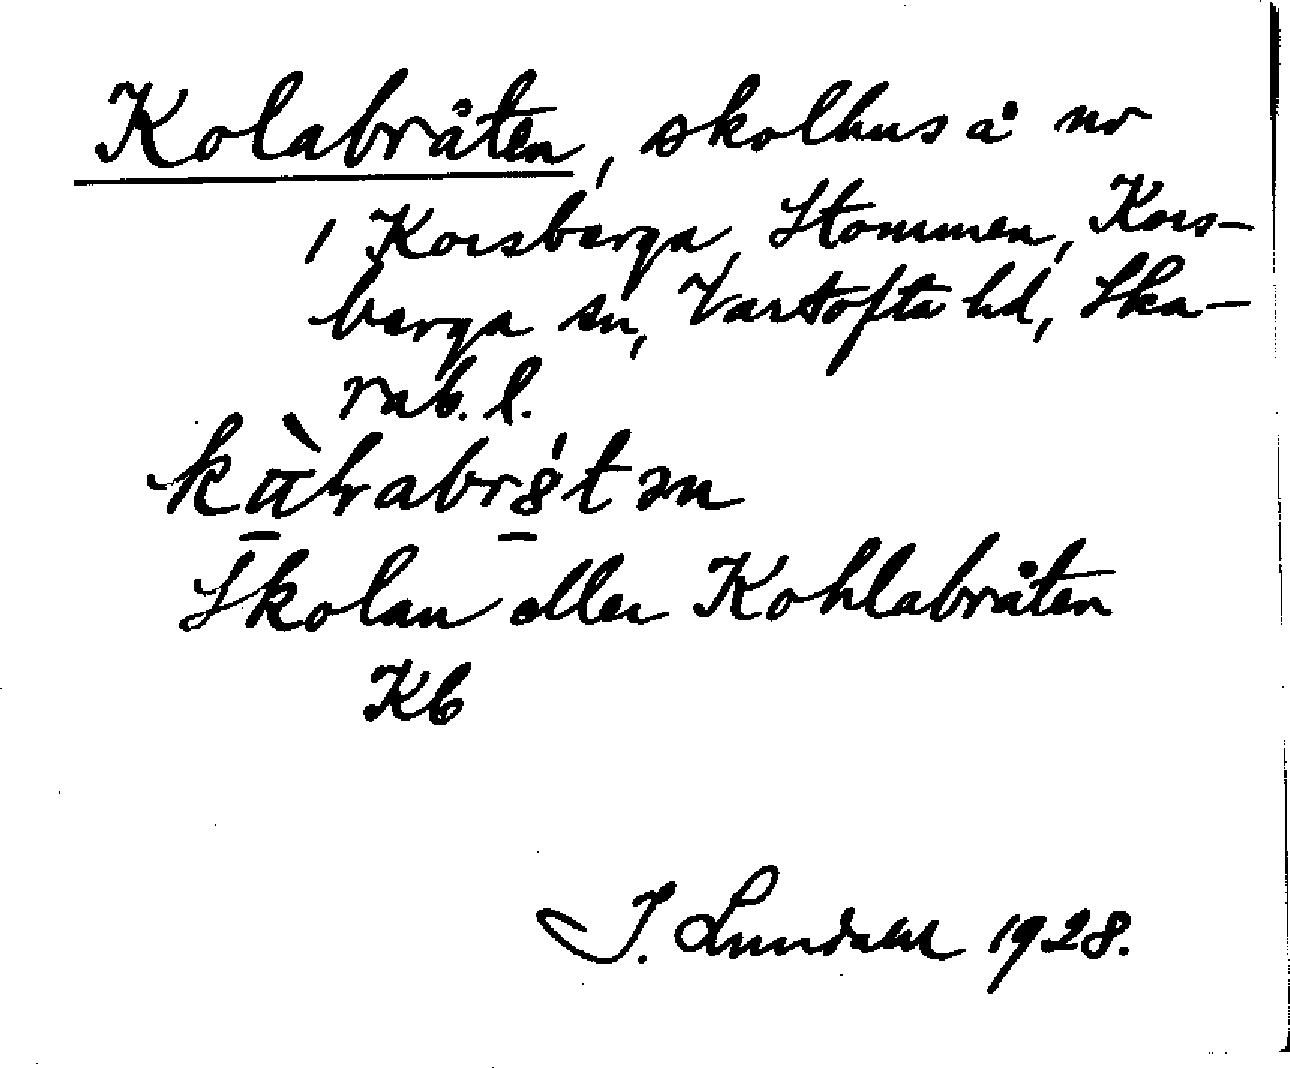 Kolabråten, skolhus å nr
1 Korsberga, Stommen, Kors-
berga sn, Vartofta hd, Ska-
rab. l.
Skolan eller Kohlabråten
Kb
I. Lundahl 1928.